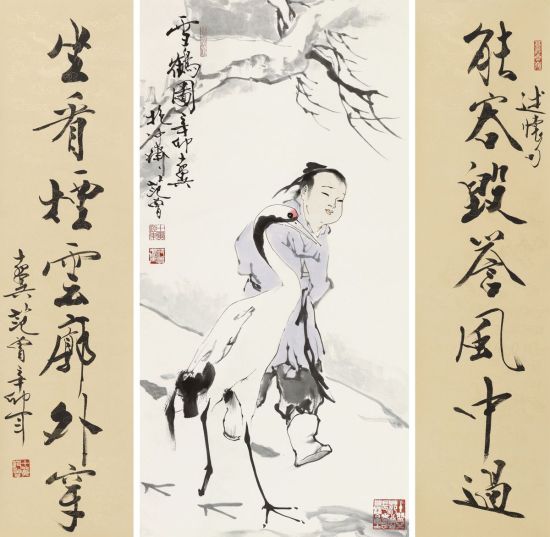 能容毀誉風中過
述懷句
雪鶴圖辛卯十翼
抱冲齋范曾
坐看煙雲廓外穿
十翼范曾辛卯年